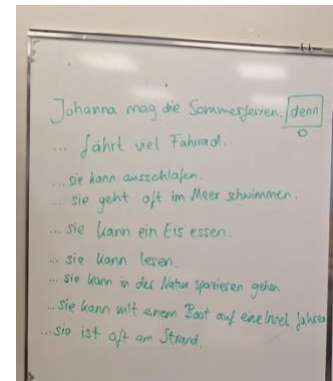 Johanna mag die Sommerferien, denn
0
... fährt viel Fahrrad.
... sie kann ausschlafen.
... sie geht oft im Meer schwimmen.
... sie kann ein Eis essen.
... sie kann lesen.
... sie kann in der Natur spazieren gehen.
... sie kann mit einem Boot auf eine Insel fahren
... sie ist oft am Strand.